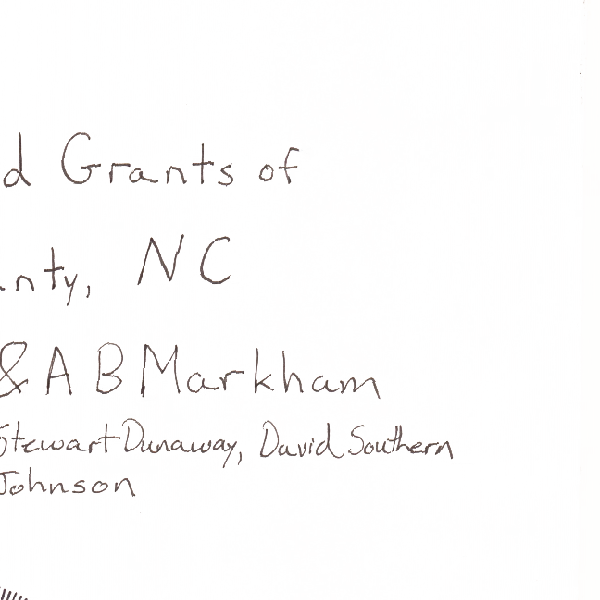 d Grants of
nty, NC
& A B Markham
Stewart Dunaway, David Southern
Johnson